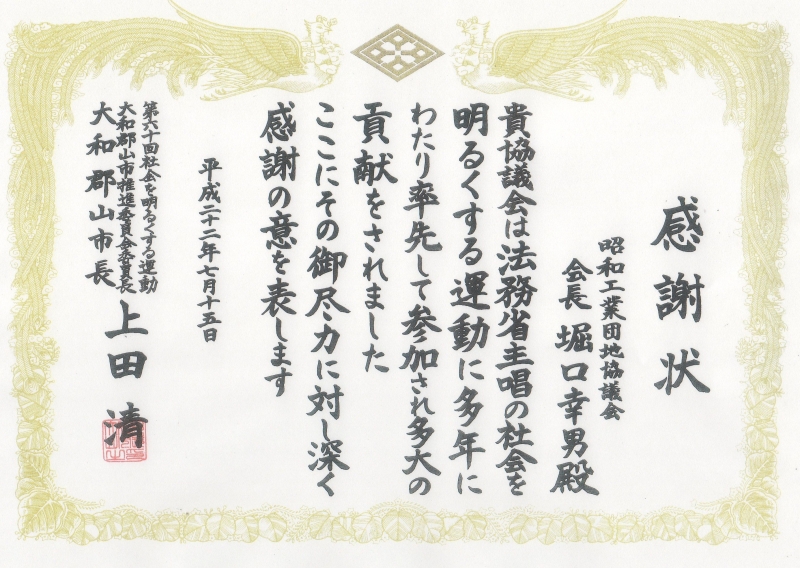 感謝状
昭和工業団地協議会
会長 堀口幸男殿
貴協議会は法務省主唱の社会を
明るくする運動に多年に
わたり率先して参加され多大の
貢献をされました
ここにその御尽力に対し深く
感謝の意を表します
平成二十二年七月十五日
第六十回社会を明るくする運動
大和郡山市推進委員会委員長
大和郡山市長 上田 清